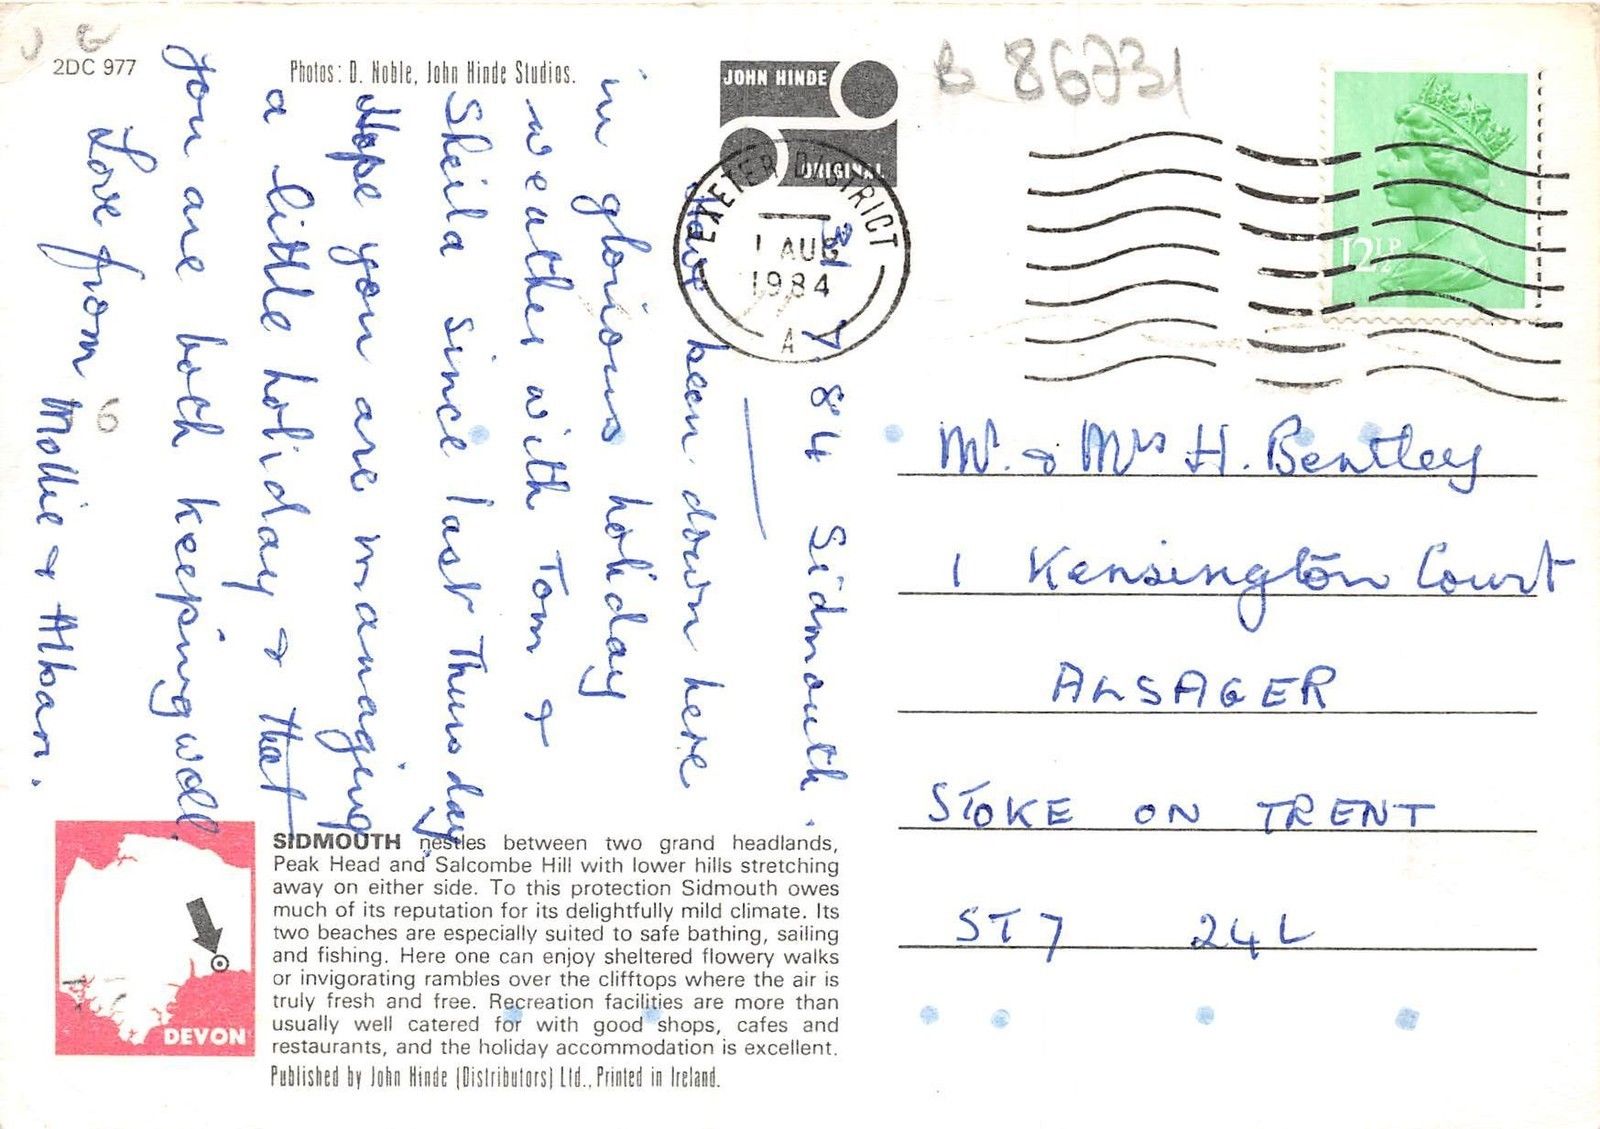 2DC 977
Photos: D. Noble, John Hinde Studios.
JOHN HINDE
ORIGINAL
B 86731
EXETER DISTRICT
1 AUG
1984
A
12½P
31 7 84 Sidmouth.
Have been down here
in glorious holiday
weather with Tom &
Sheila since last Thursday.
Hope you are managing
a little holiday & that
you are both keeping well.
Love from
Mollie & Alban.
6
Mr. & Mrs H. Bentley
1 Kensington Court
ALSAGER
STOKE ON TRENT
ST7 24L
SIDMOUTH nestles between two grand headlands,
Peak Head and Salcombe Hill with lower hills stretching
away on either side. To this protection Sidmouth owes
much of its reputation for its delightfully mild climate. Its
two beaches are especially suited to safe bathing, sailing
and fishing. Here one can enjoy sheltered flowery walks
or invigorating rambles over the clifftops where the air is
truly fresh and free. Recreation facilities are more than
usually well catered for with good shops, cafes and
restaurants, and the holiday accommodation is excellent.
Published by John Hinde (Distributors) Ltd., Printed in Ireland.
DEVON